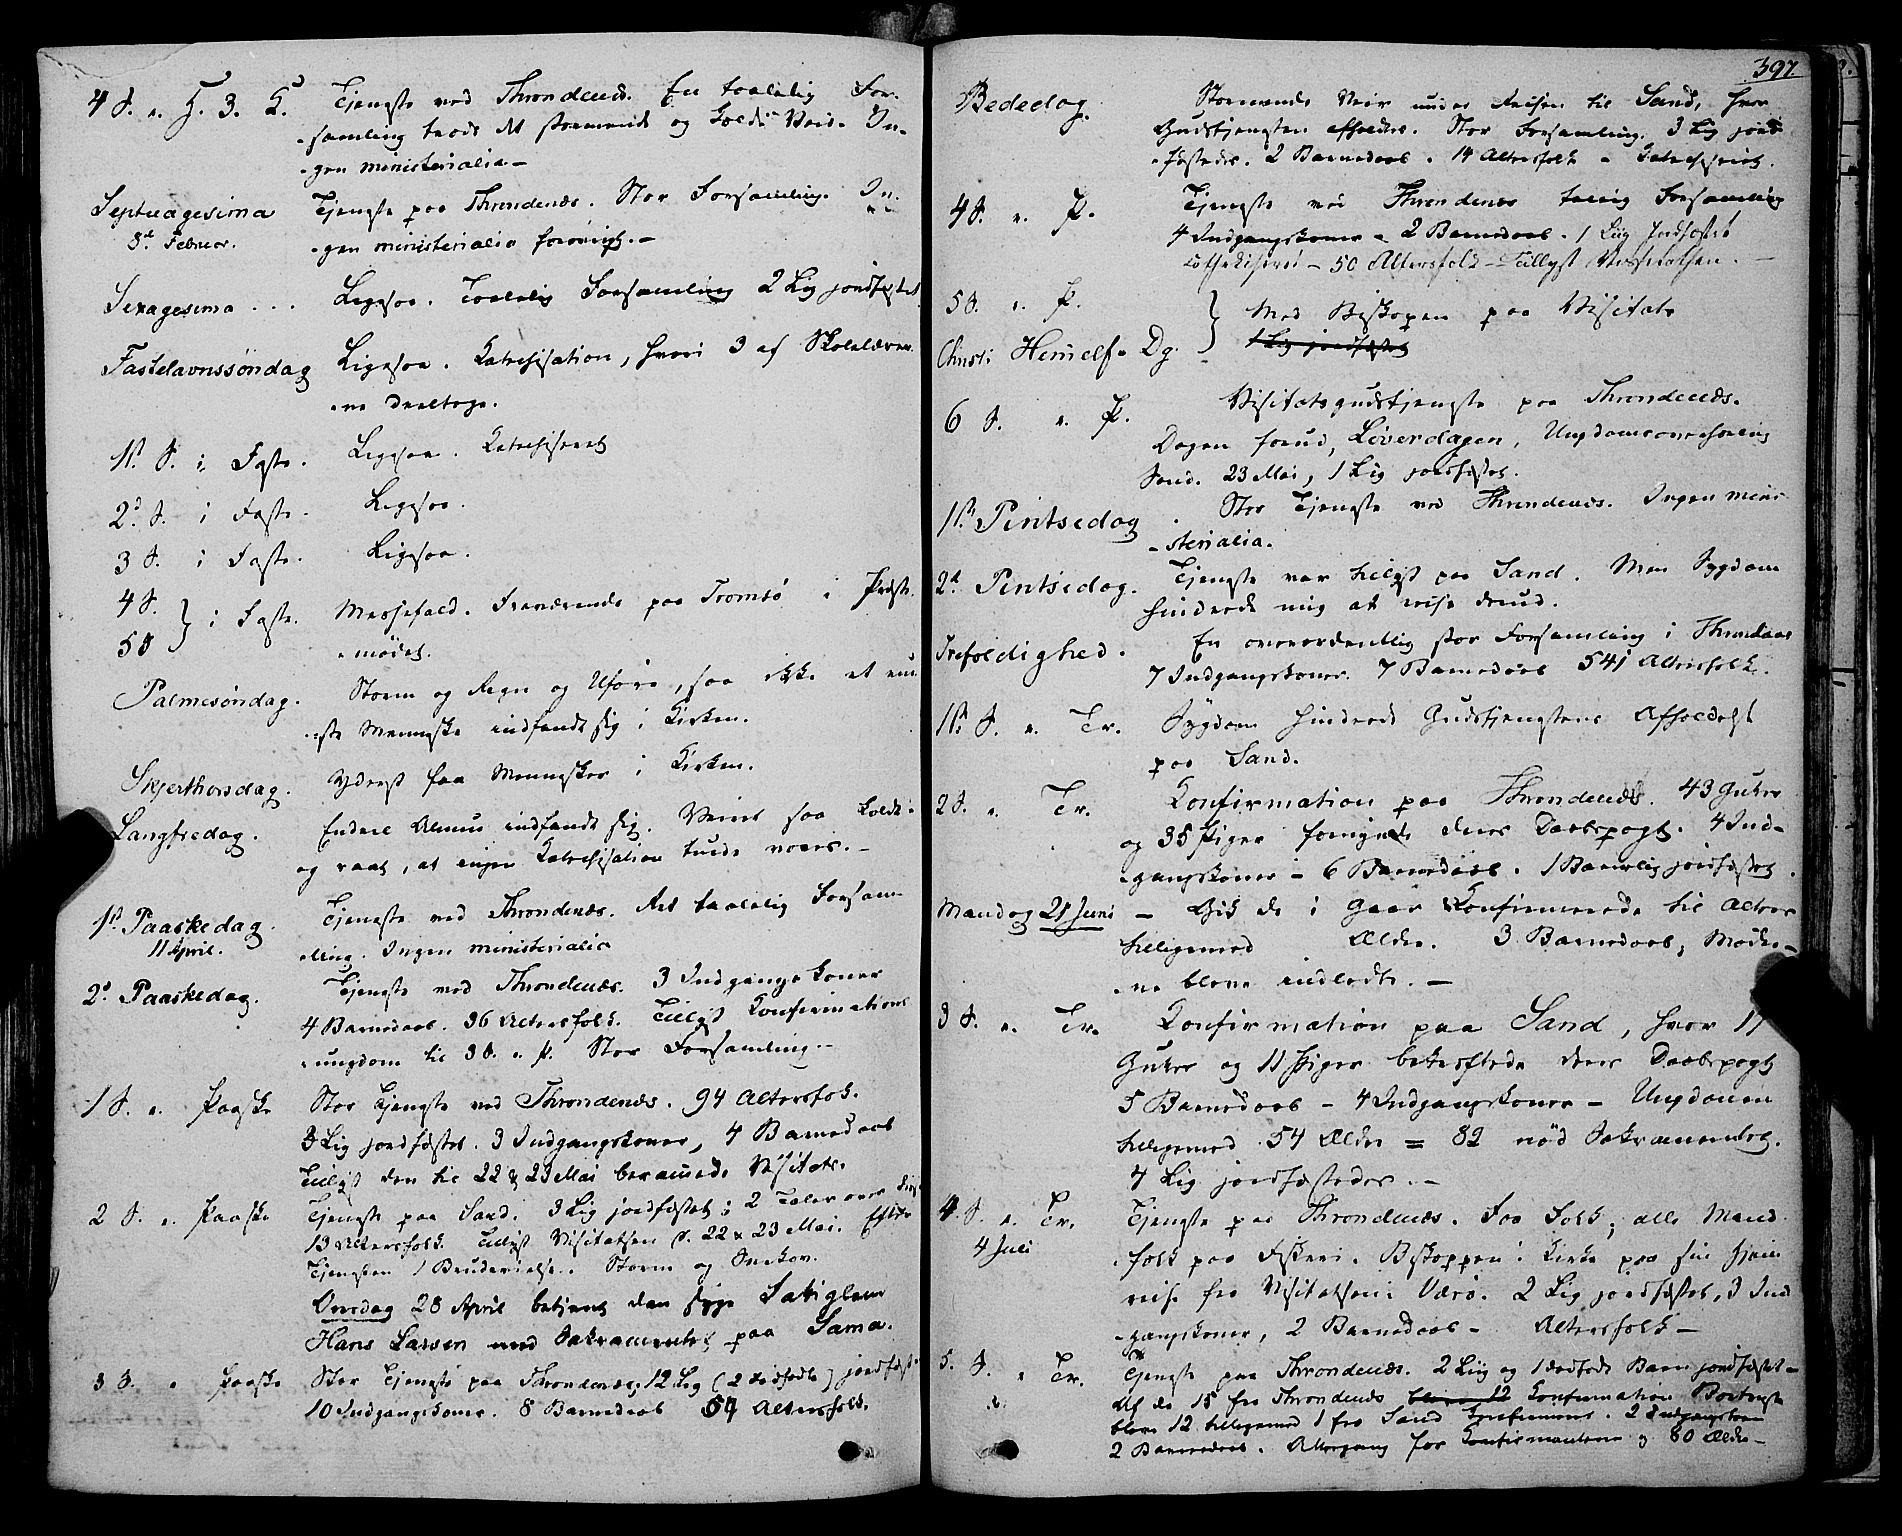 4 S. e. H. 3. K. Tjeneste ved Throndenæs. En taalelig For-
samling trods det stormende og kolde Veir. In-
gen ministerialia –
Septuagesima Tjeneste paa Throndenæs. Stor Forsamling. In-
8de Februar. gen ministerialia forøvrigt. –
Sexagesima . . . Ligesaa. Taalelig Forsamling 2 Lig jordfæstet
Fastelavnssøndag Ligesaa. Katechisation, hvori 3 af Skolelærer
ne deeltoge.
1ste S. i Faste. Ligesaa. Katechiseret
2d S. i Faste. Ligesaa.
3 S. i Faste. Ligesaa.
4 S. } i Faste. Messefald. Fraværende paa Tromsø i Præste
5 S mødet.
Palmesøndag. Storm og Regn og Uføre, saa ikke et ene
ste Menneske indfandt sig i Kirken.
Skjerthorsdag. Yderst faa Mennesker i Kirken.
Langfredag. Endeel Almue indfandt sig. Veiret saa koldt
og raat, at ingen Katechisation turde voves. –
1ste Paaskedag. Tjeneste ved Throndenæs. Ret taalelig Forsam
11 April. ling. Ingen ministerialia
2d Paaskedag. Tjeneste ved Throndenæs. 3 Indgangskoner
4 Barnedaab. 36 Altersfolk. Tillyst Konfirmations
ungdom til 3 S. e. P. Stor Forsamling. –
1 S. e. Paaske Stor Tjeneste ved Throndenæs. 94 Altersfolk.
3 Lig jordfæstet. 3 Indgangskoner, 4 Barnedaab
Tillyst den til 22 & 23 Mai berammede Visitats.
2 S. e. Paaske Tjeneste paa Sand. 3 Lig jordfæstet; 2 Taler over
13 Altersfolk. Tillyst Visitatsen d. 22 & 23 Mai. Efter
Tjenesten 1 Brudevielse. Storm og Snekov.
Onsdag 28 April betjent den syge
Hans Larsen med Sakramentet paa Sama.
3 S. e. Paaske Stor Tjeneste paa Throndenæs, 12 Lig (2 dødfødte) jordfæst
10 Indgangskoner. 8 Barnedaab 54 Altersfolk.
397
Bededag. Stormende Veir under Reisen til Sand, hvor
Gudstjenesten afholdtes. Stor Forsamling. 3 Lig jord
fæstedes. 2 Barnedaab. 14 Altersfolk – Katechiseret.
4 S. e. P. Tjeneste ved Throndenæs Forsamling
4 Indgangskoner – 2 Barnedaab. 1 Liig Jordfæstet
Cathekiseret – 50 Altersfolk – Tillyst Visitatsen. –
5 S. e. P. } Med Biskopen paa Visitats
Christi Himelf. Dg. 1 Lig jordfæstet
6 S. e. P. Visitatsgudstjeneste paa Throndenæs.
Dagen forud, Løverdagen, Ungdomsoverhøring
Sønd. 23 Mai, 1 Lig jordfæstet.
1ste Pintsedag. Stor Tjeneste ved Throndenæs. Ingen mini
sterialia.
2d Pintsedag. Tjeneste var tillyst paa Sand. Men Sygdom
hindrede mig at reise derud.
Trefoldighed. En overordentlig stor Forsamling i Throndenæs
7 Indgangskoner. 7 Barnedaab 541 Altersfolk.
1ste S. e. Tr. Sygdom hindrede Gudstjenestens Afholdelse
paa Sand.
2 S. e. Tr. Konfirmation paa Throndenæs. 43 Gutter
og 35 Piger fornyede deres Daabspagt. 4 Ind-
gangskoner – 6 Barnedaab. 1 Barnelig jordfæstet.
Mandag 21 Juni – Gik de i Gaar Konfirmerede til Alters
tilligemed Ældre. 3 Barnedaab, Mødre-
ne bleve indledte. –
3 S. e. Tr. Konfirmation paa Sand, hvor 17
Gutter og 11 Piger bekræftede deres Daabspagt
5 Barnedaab – 4 Indgangskoner – Ungdommen
tilligemed 54 Ældre = 82 nød Sakramentet.
4 Lig jordfæstedes. –
4. S. e. Tr. Tjeneste paa Throndenæs. Faa Folk; alle Mand
4 Juli folk paa Fiskeri. Biskoppen i Kirke paa sin Hjem
reise fra Visitatsen i Værø. 2 Lig jordfæstet, 3 Ind
gangskoner, 2 Barnedaab – Altersfolk –
5. S. e. Tr. Tjeneste paa Throndenæs. 2 Liig og 1 dødfødt Barn jordfæstet –
Af de 15 fra Throndenæs bleve 12 Konfirmation
bleve 12 tilligemed 1 fra Sand konfirmeret. 2 Indgangskoner
2 Barnedaab. Altergang for Konfirmanterne og 80 Ældre –